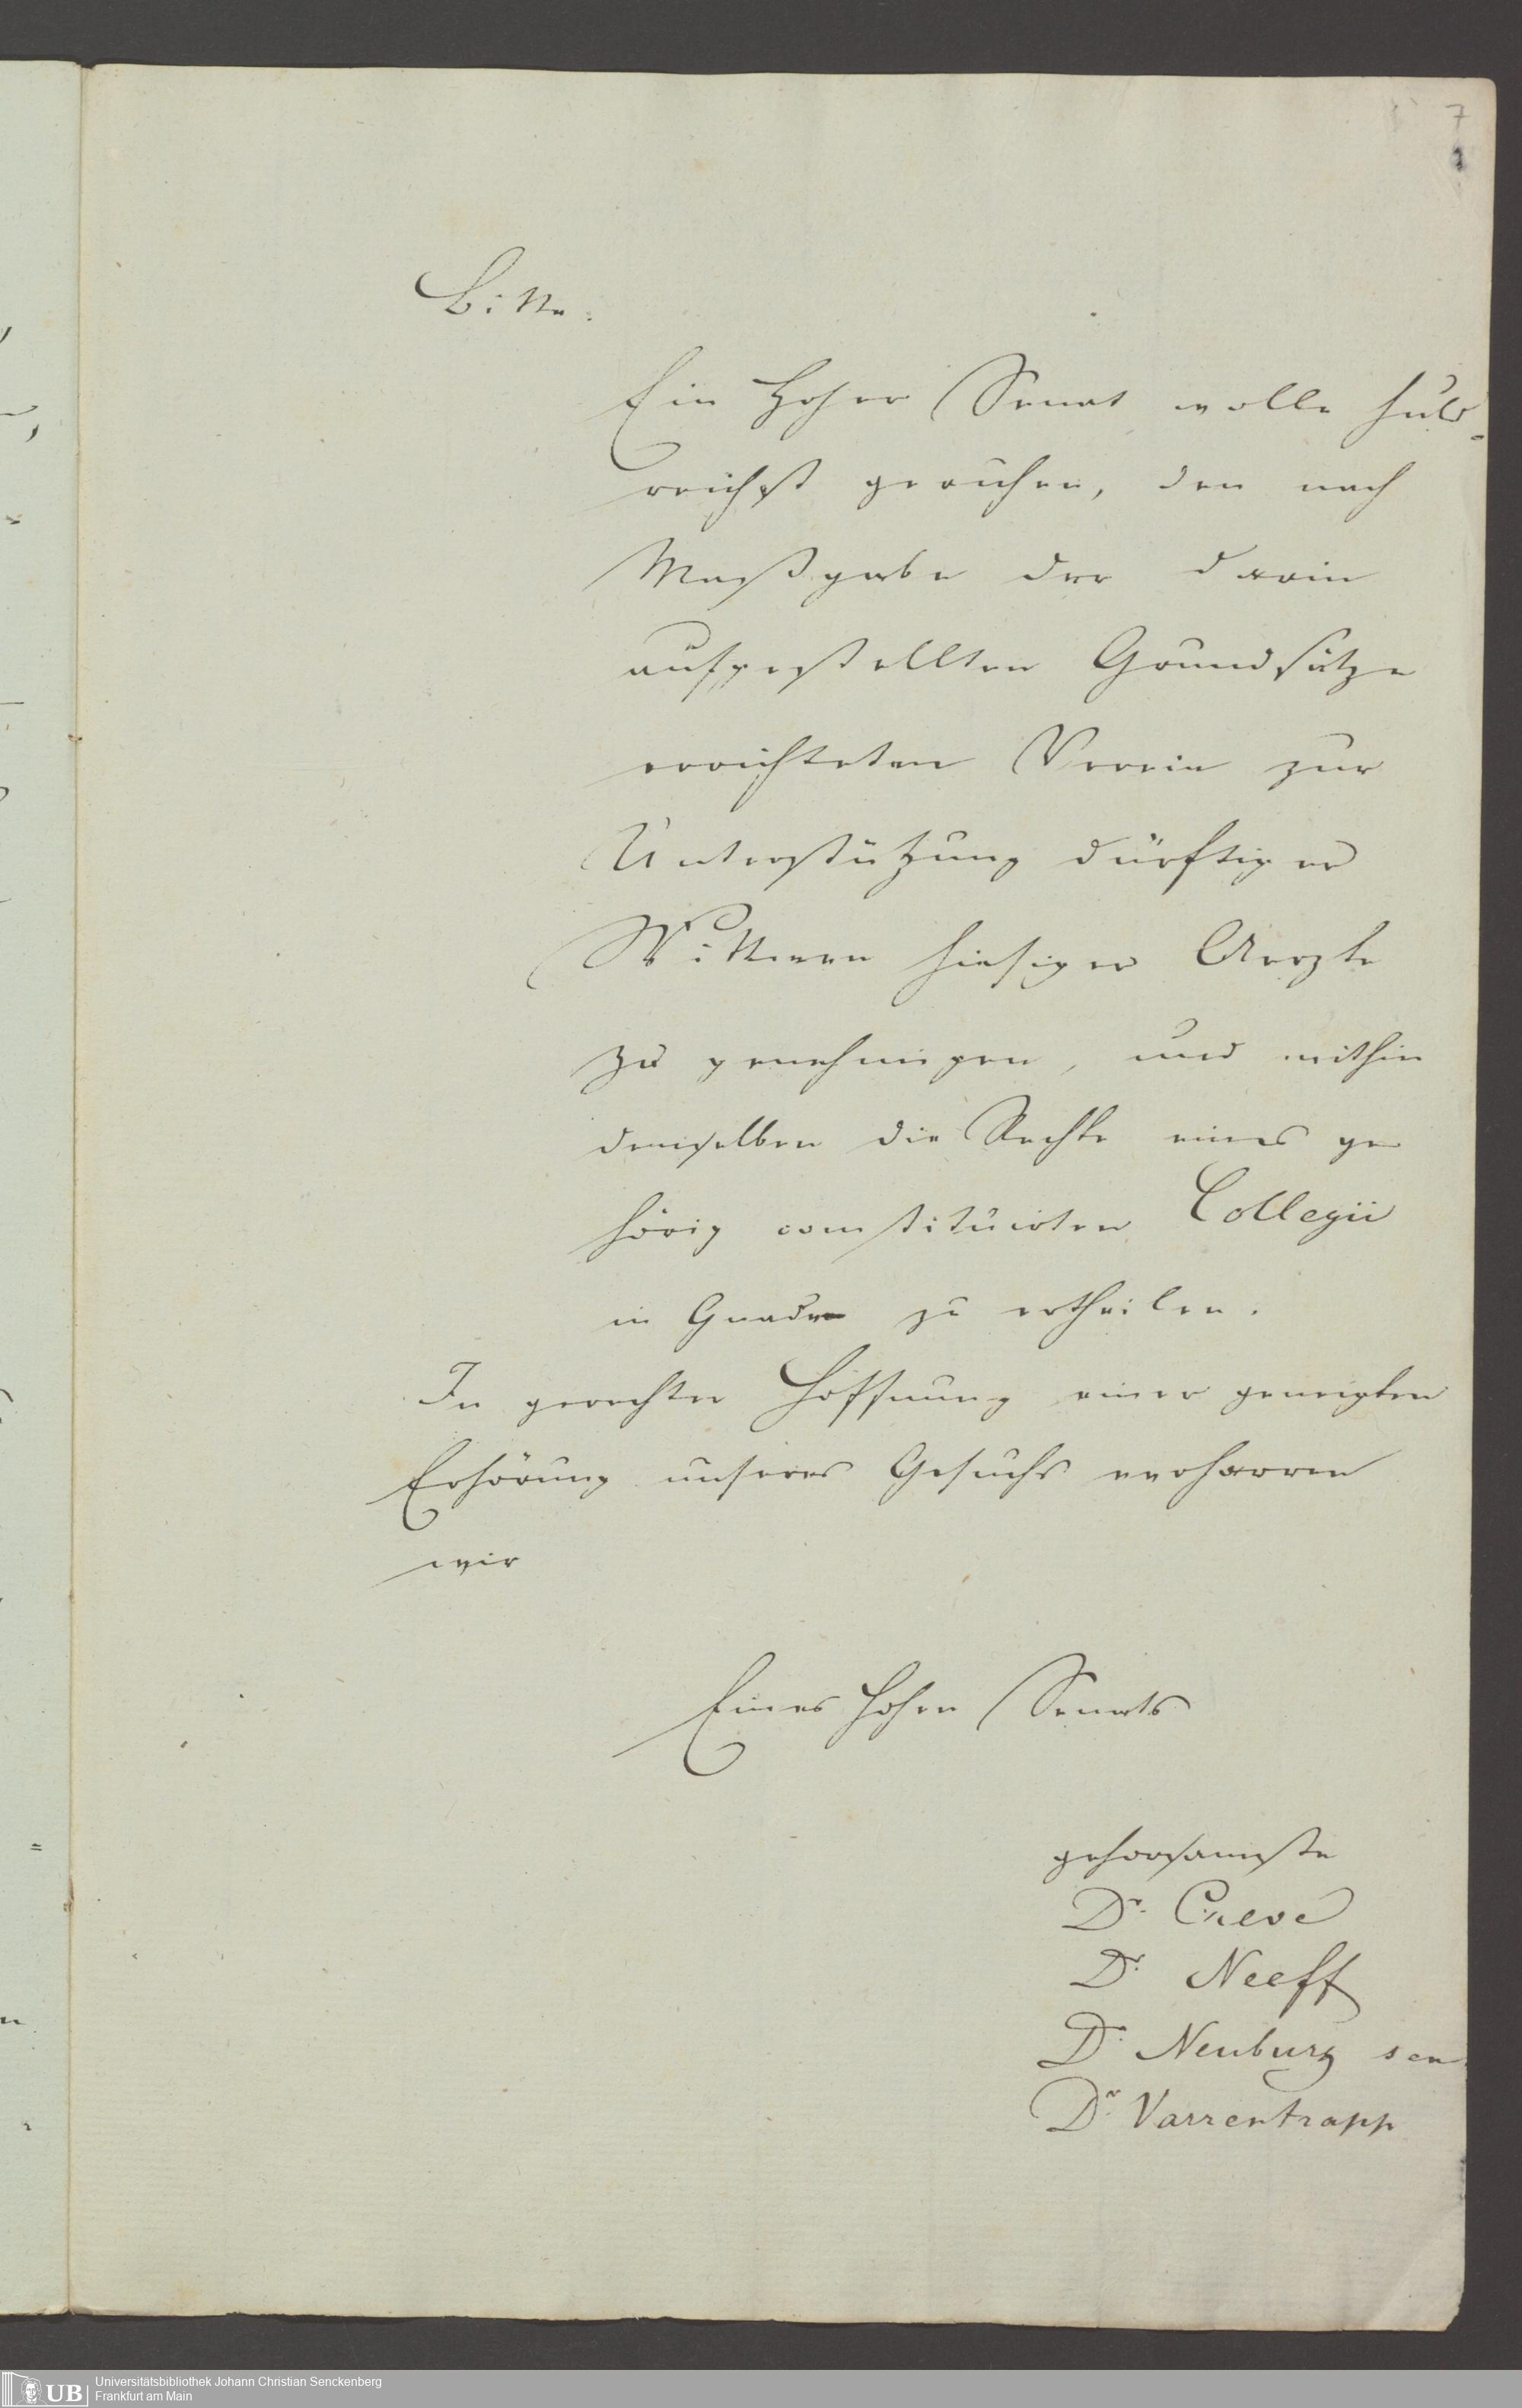 7
Bitte.
Ein hoher Senat wolle huld-
reichst geruhen, den nach
Maßgabe der darin
aufgestellten Grundsätze
errichteten Verein zur
Unterstützung dürftiger
Wittwen hiesiger Aerzte
zu genehmigen, und mithin
demselben die Rechte eines ge
hörig constituirten Collegii
in Gnaden zu ertheilen.
In gerechter Hoffnung einer geneigten
Erhörung unseres Gesuchs verharren
wir
Eines hohen Senats
gehorsamste
Dr. Creve
Dr. Neeff
Dr. Neuburg sen
Dr. Varrentrapp
UB
Universitätsbibliothek Johann Christian Senckenberg
Frankfurt am Main